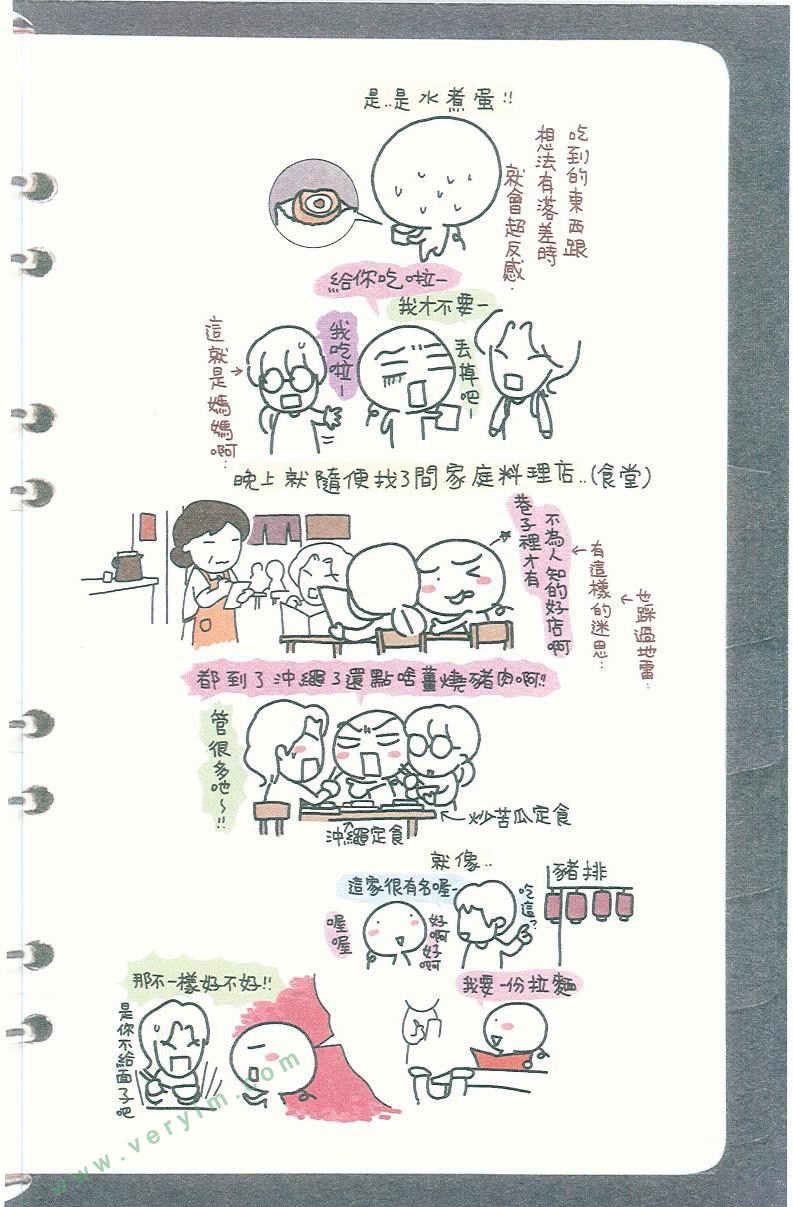 是..是水煮蛋!!
吃到的東西跟
想法有落差時
就會超反感.
給你吃啦ー
我才不要ー
這就是媽媽啊..
我吃啦ー
丟掉吧ー
晚上就隨便找了間家庭料理店..(食堂)
不為人知的好店啊
巷子裡才有
有這樣的迷思..
也踩過地雷..
都到了沖繩了還點啥薑燒豬肉啊!!
管很多吔~!!
沖繩定食
炒苦瓜定食
就像..
豬排
這家很有名喔ー
吃這?
喔喔
好啊好啊
那不一樣好不好!!
我要一份拉麵
是你不給面子吧
www.veryim.com